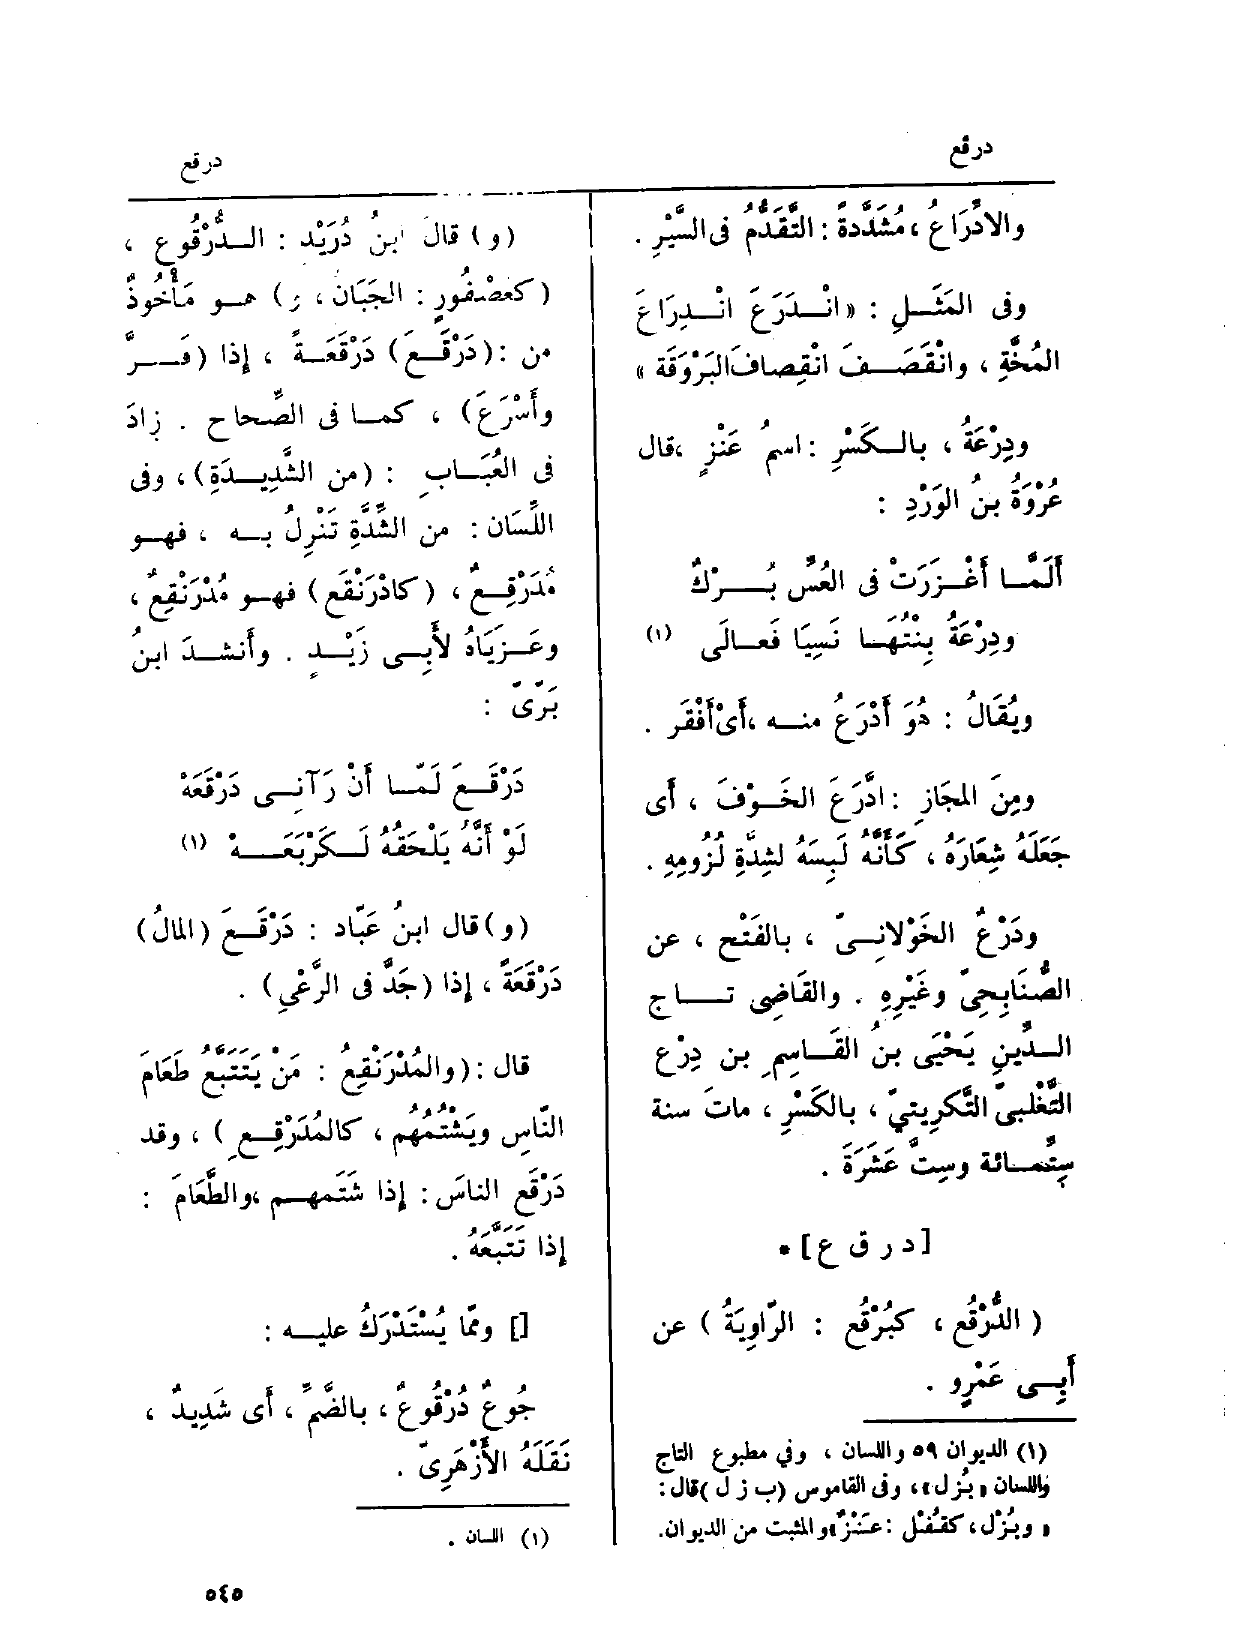 درقع
درقع
والادِّرَاعُ ، مُشَدَّدةً : التَّقَدُّمُ فى السَّيْرِ .
وفى المَثَلِ : «انْدَرَعَ انْدِرَاعَ
المُخَّةِ ، وانْقَصَفَ انْقِصافَ البَرْوَقَة »
ودِرْعَةُ ، بالكَسْرِ : اسمُ عَنْزٍ ، قال
عُرْوَةُ بنُ الوَرْدِ :
أَلَمَّا أَغْزَرَتْ فى العُسِّ بُرْكٌ
ودِرْعَةُ بِنْتُهَا نَسِيَا فَعَالَى (١)
ويُقَالُ : هُوَ أَدْرَعُ منه ، أَىْ أَفْقَر .
ومِنَ المجَازِ : ادَّرَعَ الخَوْفَ ، أَى
جَعَلَهُ شِعَارَهُ ، كَأَنَّهُ لَبِسَهُ لشِدَّةِ لُزُومِهِ .
ودَرْعٌ الخَوْلانِىّ ، بالفَتْح ، عن
الصُّنَابِحِىِّ وغَيْرِهِ . والقَاضِى تاج
الدِّينِ يَحْيَى بنُ القَاسِمِ بن دِرْع
التَّغْلبىّ التَّكرِيتيّ ، بالكَسْرِ ، ماتَ سنة
سِتِّمائة وسِتَّ عَشَرَةَ .
[ د ر ق ع ] *
( الدُّرْقُع ، كبُرْقُع : الرَّاوِيَةُ ) عن
أَبِى عَمْرٍو .
(١) الديوان ٥٩ واللسان ، وفي مطبوع التاج
واللسان « بُزل»، وفى القاموس (ب ز ل) قال :
« وبُزْل ، كقُفْل : عَنْزٌ» والمثبت من الديوان .
( و ) قالَ ابنُ دُرَيْد : الدُّرْقُوع ،
( كعُصْفُورٍ : الجَبَان ، و ) هو مَأْخُوذٌ
من : ( دَرْقَعَ ) دَرْقَعَةً ، إذا ( فَرَّ
وأَسْرَعَ ) ، كما فى الصّحاح . زادَ
فى العُبَابِ : ( من الشَّدِيدَةِ ) ، وفى
اللِّسَان : من الشِّدَّةِ تَنْزِلُ به ، فهو
مُدَرْقِعٌ ، ( كادْرَنْقَع ) فهو مُدْرَنْقِعٌ ،
وعَزَيَاهُ لأَبِى زَيْدٍ . وأَنشدَ ابنُ
بَرِّىّ :
دَرْقَعَ لَمّا أَنْ رَآنِى دَرْقَعَهْ
لَوْ أَنَّهُ يَلْحَقُهُ لَكَرْبَعَهْ (١)
( و ) قال ابنُ عَبّاد : دَرْقَعَ ( المالُ )
دَرْقَعَةً ، إذا ( جَدَّ فى الرَّعْىِ ) .
قال : ( والمُدْرَنْقِعُ : مَنْ يَتَتَبَّعُ طَعَامَ
النّاسِ ويَشْتُمُهُم ، كالمُدَرْقِعِ ) ، وقد
دَرْقَع الناسَ : إذا شَتَمهم ، والطَّعَامَ :
إذا تَتَبَّعَهُ .
[] وممّا يُسْتَدْرَكُ عليه :
جُوعٌ دُرْقُوعٌ ، بالضَّمّ ، أَى شَدِيدٌ ،
نَقَلَهُ الأَزْهَرِىّ .
(١) اللسان .
٥٤٥